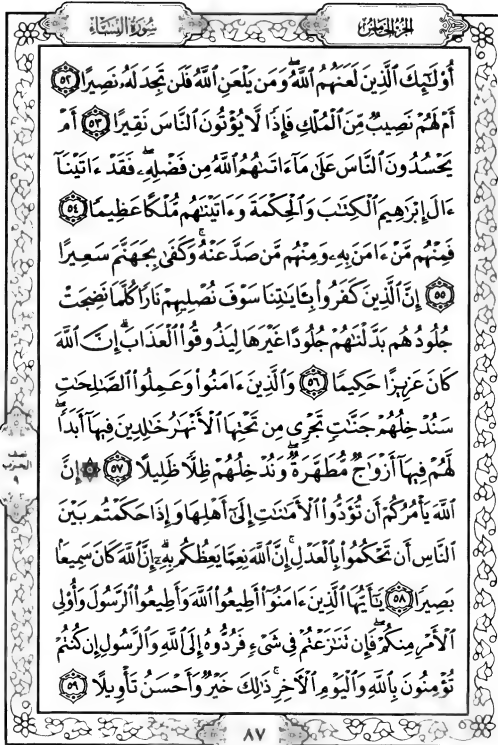 الجزء الخامس
سورة النساء
أُو۟لَٰٓئِكَ ٱلَّذِينَ لَعَنَهُمُ ٱللَّهُ ۖ وَمَن يَلْعَنِ ٱللَّهُ فَلَن تَجِدَ لَهُۥ نَصِيرًا ٥٢
أَمْ لَهُمْ نَصِيبٌ مِّنَ ٱلْمُلْكِ فَإِذًا لَّا يُؤْتُونَ ٱلنَّاسَ نَقِيرًا ٥٣ أَمْ
يَحْسُدُونَ ٱلنَّاسَ عَلَىٰ مَآ ءَاتَىٰهُمُ ٱللَّهُ مِن فَضْلِهِۦ ۖ فَقَدْ ءَاتَيْنَآ
ءَالَ إِبْرَٰهِيمَ ٱلْكِتَٰبَ وَٱلْحِكْمَةَ وَءَاتَيْنَٰهُم مُّلْكًا عَظِيمًا ٥٤
فَمِنْهُم مَّنْ ءَامَنَ بِهِۦ وَمِنْهُم مَّن صَدَّ عَنْهُ ۚ وَكَفَىٰ بِجَهَنَّمَ سَعِيرًا
٥٥ إِنَّ ٱلَّذِينَ كَفَرُوا۟ بِـَٔايَٰتِنَا سَوْفَ نُصْلِيهِمْ نَارًا كُلَّمَا نَضِجَتْ
جُلُودُهُم بَدَّلْنَٰهُمْ جُلُودًا غَيْرَهَا لِيَذُوقُوا۟ ٱلْعَذَابَ ۗ إِنَّ ٱللَّهَ
كَانَ عَزِيزًا حَكِيمًا ٥٦ وَٱلَّذِينَ ءَامَنُوا۟ وَعَمِلُوا۟ ٱلصَّٰلِحَٰتِ
سَنُدْخِلُهُمْ جَنَّٰتٍ تَجْرِى مِن تَحْتِهَا ٱلْأَنْهَٰرُ خَٰلِدِينَ فِيهَآ أَبَدًا ۖ
لَّهُمْ فِيهَآ أَزْوَٰجٌ مُّطَهَّرَةٌ ۖ وَنُدْخِلُهُمْ ظِلًّا ظَلِيلًا ٥٧ ۞ إِنَّ
ٱللَّهَ يَأْمُرُكُمْ أَن تُؤَدُّوا۟ ٱلْأَمَٰنَٰتِ إِلَىٰٓ أَهْلِهَا وَإِذَا حَكَمْتُم بَيْنَ
ٱلنَّاسِ أَن تَحْكُمُوا۟ بِٱلْعَدْلِ ۚ إِنَّ ٱللَّهَ نِعِمَّا يَعِظُكُم بِهِۦٓ ۗ إِنَّ ٱللَّهَ كَانَ سَمِيعًۢا
بَصِيرًا ٥٨ يَٰٓأَيُّهَا ٱلَّذِينَ ءَامَنُوٓا۟ أَطِيعُوا۟ ٱللَّهَ وَأَطِيعُوا۟ ٱلرَّسُولَ وَأُو۟لِى
ٱلْأَمْرِ مِنكُمْ ۖ فَإِن تَنَٰزَعْتُمْ فِى شَىْءٍ فَرُدُّوهُ إِلَى ٱللَّهِ وَٱلرَّسُولِ إِن كُنتُمْ
تُؤْمِنُونَ بِٱللَّهِ وَٱلْيَوْمِ ٱلْءَاخِرِ ۚ ذَٰلِكَ خَيْرٌ وَأَحْسَنُ تَأْوِيلًا ٥٩
الحزب
٩
٨٧